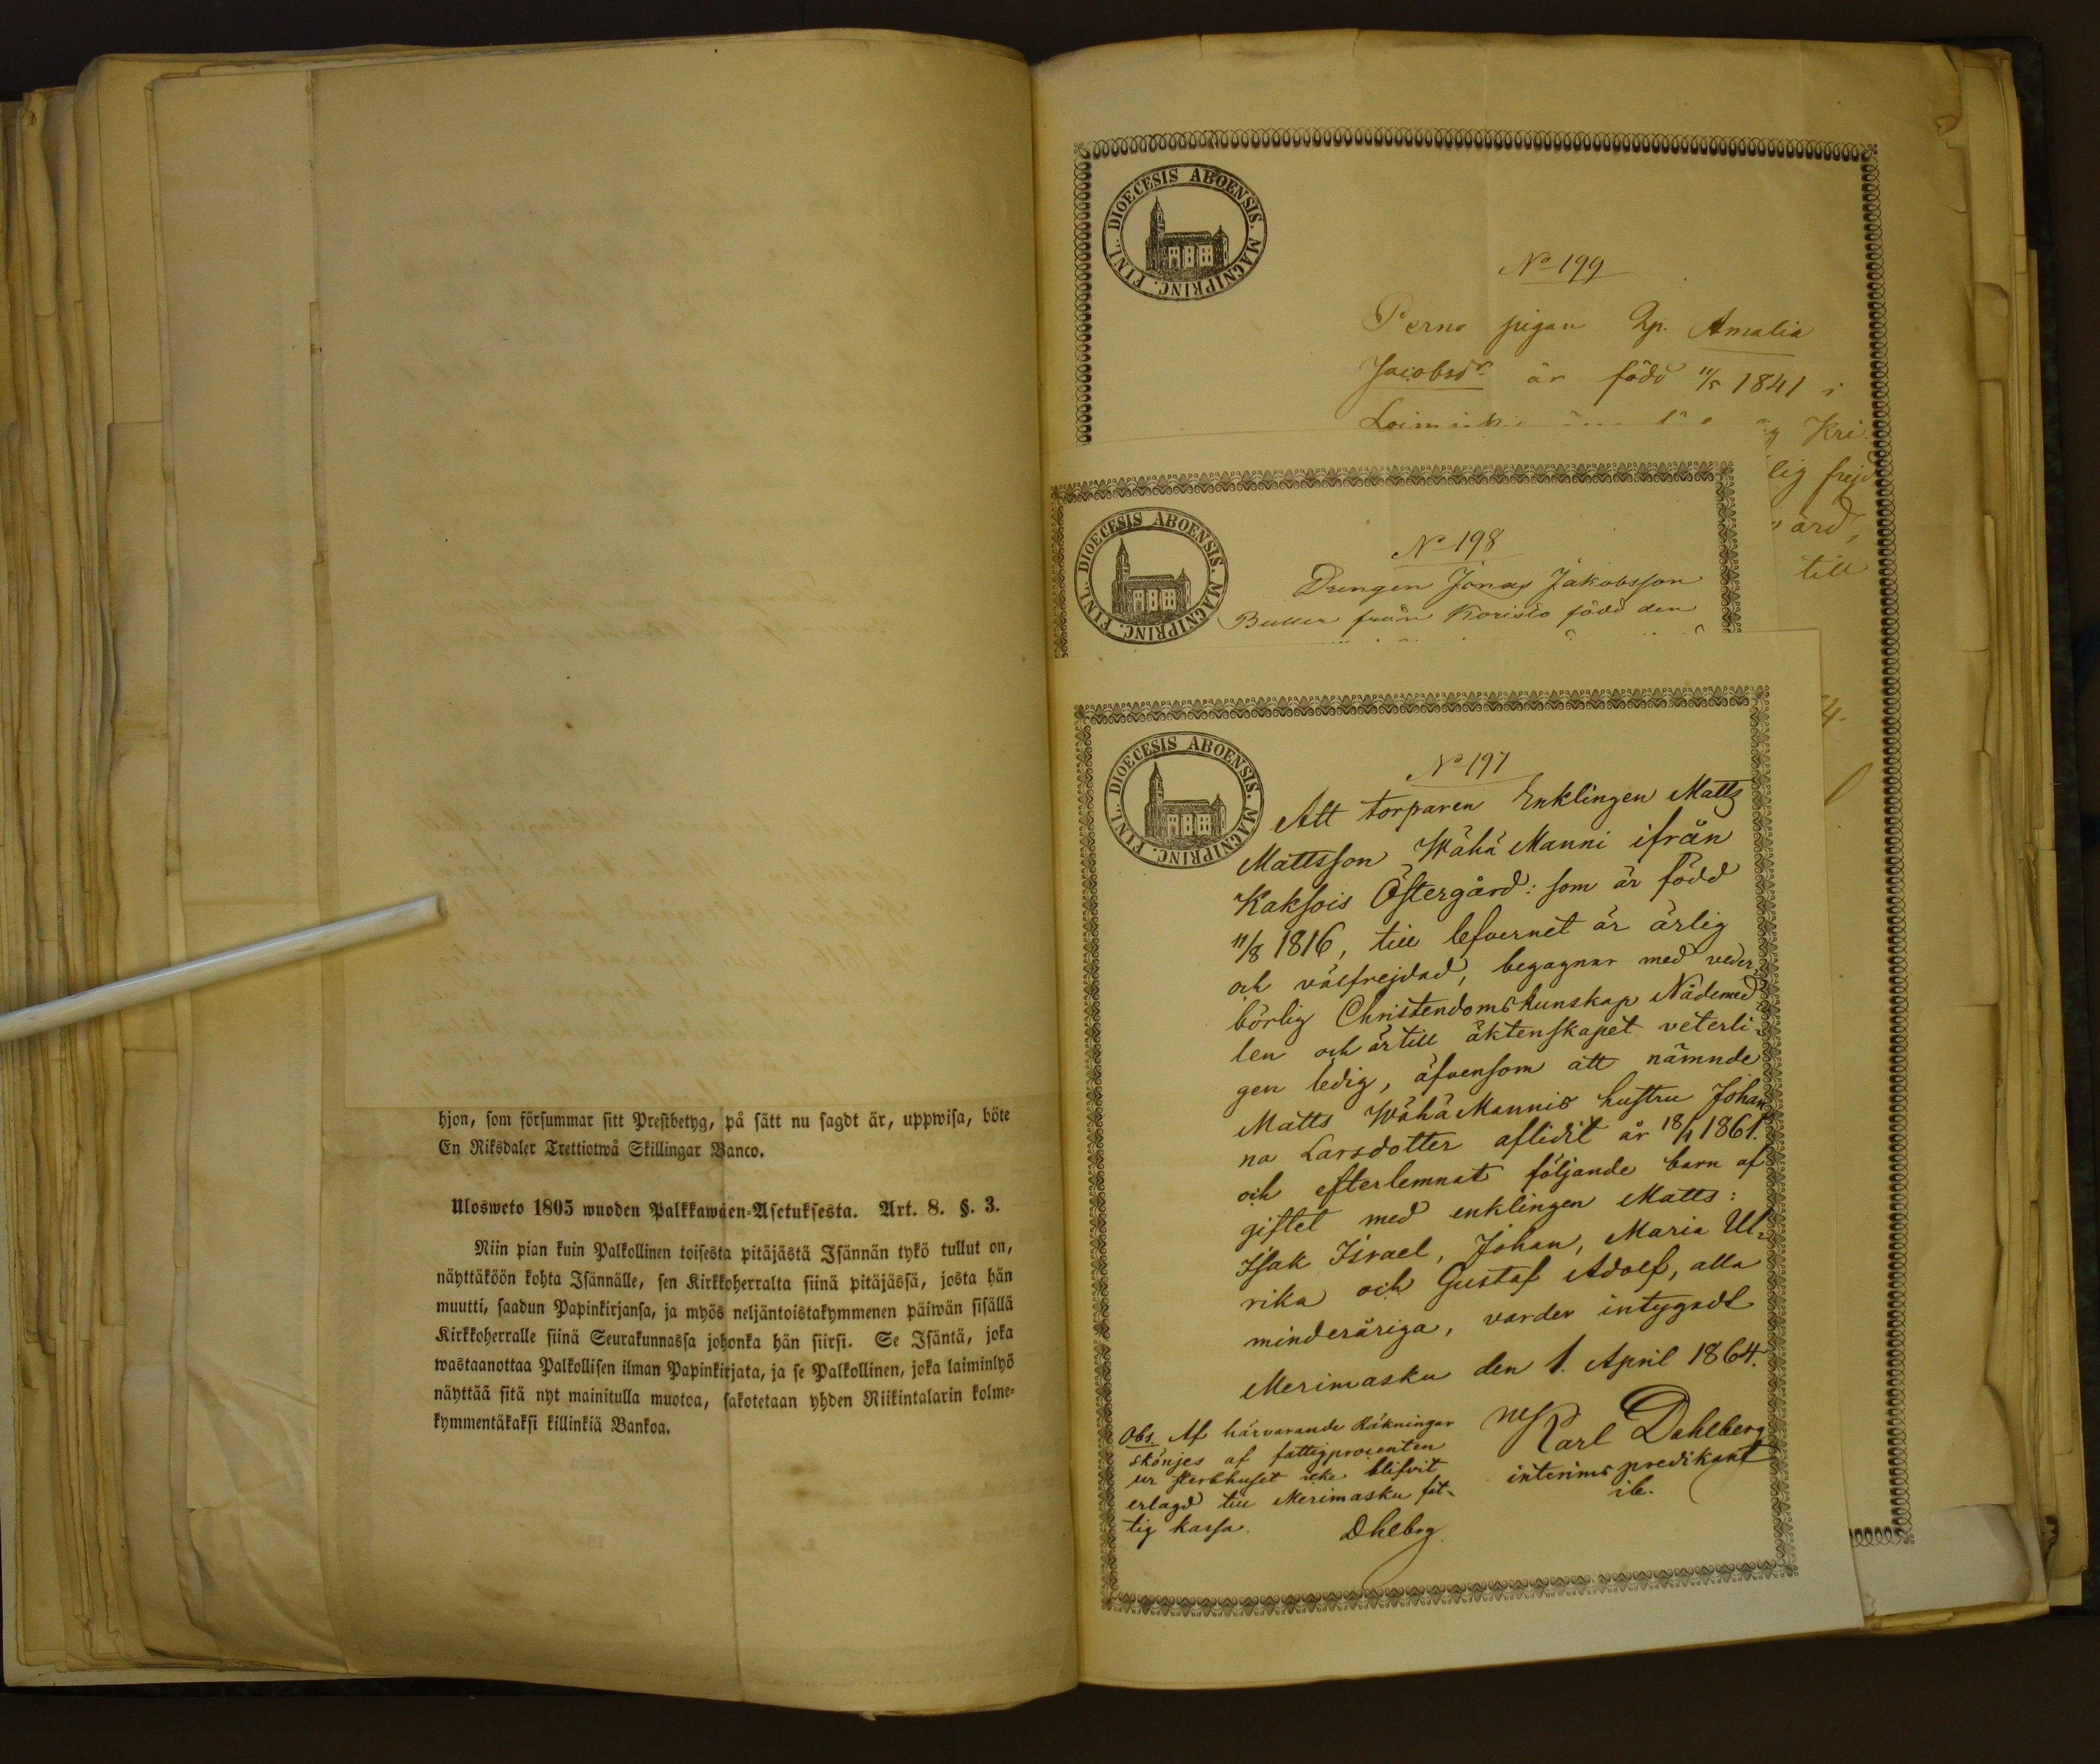 hjon, som försummar sitt Prestbetyg, på sätt nu sagdt är, uppwisa, böte
En Riksdaler Trettiotwå Skillingar Banco.
Ulosweto 1805 wuoden Palkkawäen-Asetuksesta. Art. 8. §. 3.
Niin pian kuin Palkollinen toisesta pitäjästä Isännän tykö tullut on,
näyttäköön kohta Isännälle, sen Kirkkoherralta siinä pitäjässä, josta hän
muutti, saadun Papinkirjansa, ja myös neljäntoistakymmenen päiwän sisällä
Kirkkoherralle siinä Seurakunnassa johonka hän siirsi. Se Isäntä, joka
wastaanottaa Palkollisen ilman Papinkirjata, ja se Palkollinen, joka laiminlyö
näyttää sitä nyt mainitulla muotoa, sakotetaan yhden Riikintalarin kolme-
kymmentäkaksi killinkiä Bankoa.
DIOECESIS ABOENSIS. MAGNIPRINC. FINL.
No 199
Perno pigan Amalia
Jacobsdr är född 11/5 1841 i
Kri
lig frejd
ård,
till
DIOECESIS ABOENSIS. MAGNIPRINC. FINL.
No 198
Drengen Jonas Jakobsson
Buller från Koristo född den
DIOECESIS ABOENSIS. MAGNIPRINC. FINL.
No 197
Att torparen Enklingen Matts
Mattsson Wähä Manni ifrån
Kaksois Östergård: som är född
11/8 1816, till lefvernet är ärlig
och välfrejdad, begagnar med veder-
börlig Christendomskunskap Nådemed
len och är till äktenskapet veterli-
gen ledig, äfvensom att nämnde
Matts Wähä Mannis hustru Johan-
na Larsdotter aflidit år 18/1 1861.
och efterlemnat följande barn af
giftet med enklingen Matts:
Isak Israel, Johan, Maria Ul-
rika och Gustaf Adolf, alla
minderåriga, varder intygadt
Merimasku den 1. April 1864.
Karl Dahlberg
interims predikant
ib.
Obs. Af härvarande Räkningar
skönjes af fattigprocenten
ur sterbhuset icke blifvit
erlagd till Merimasku fat-
tig kassa. Dhlbrg